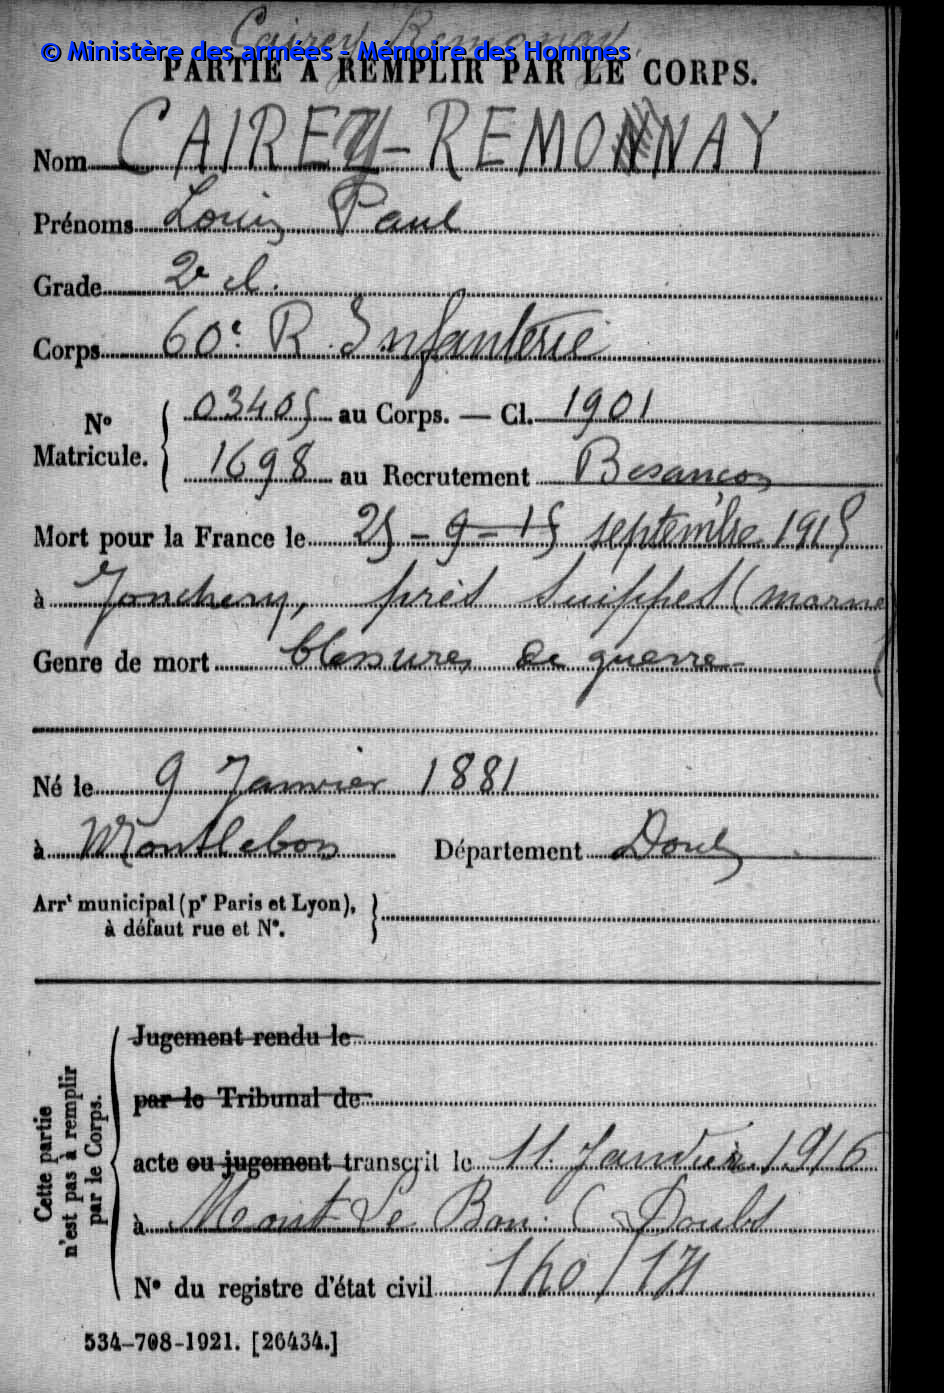 Cairey Remonay.
© Ministère des armées - Mémoire des Hommes
PARTIE A REMPLIR PAR LE CORPS.
Nom CAIREY-REMONNAY
Prénoms Louis Paul
Grade 2e cl.
Corps 60e R. Infanterie
No Matricule. { 03405 au Corps. — Cl. 1901
1698 au Recrutement Besançon
Mort pour la France le 25 - 9 - 15 septembre 1915
à Jonchery, près Suippes (marne)
Genre de mort blessures de guerre
Né le 9 Janvier 1881
à Montlebon Département Doubs
Arrt municipal (pr Paris et Lyon), à défaut rue et No. }
Cette partie n'est pas à remplir par le Corps.
Jugement rendu le
par le Tribunal de
acte ou jugement transcrit le 11 Janvier 1916
à Mont Le Bon (Doubs
No du registre d'état civil 140/14
534-708-1921. [26434.]